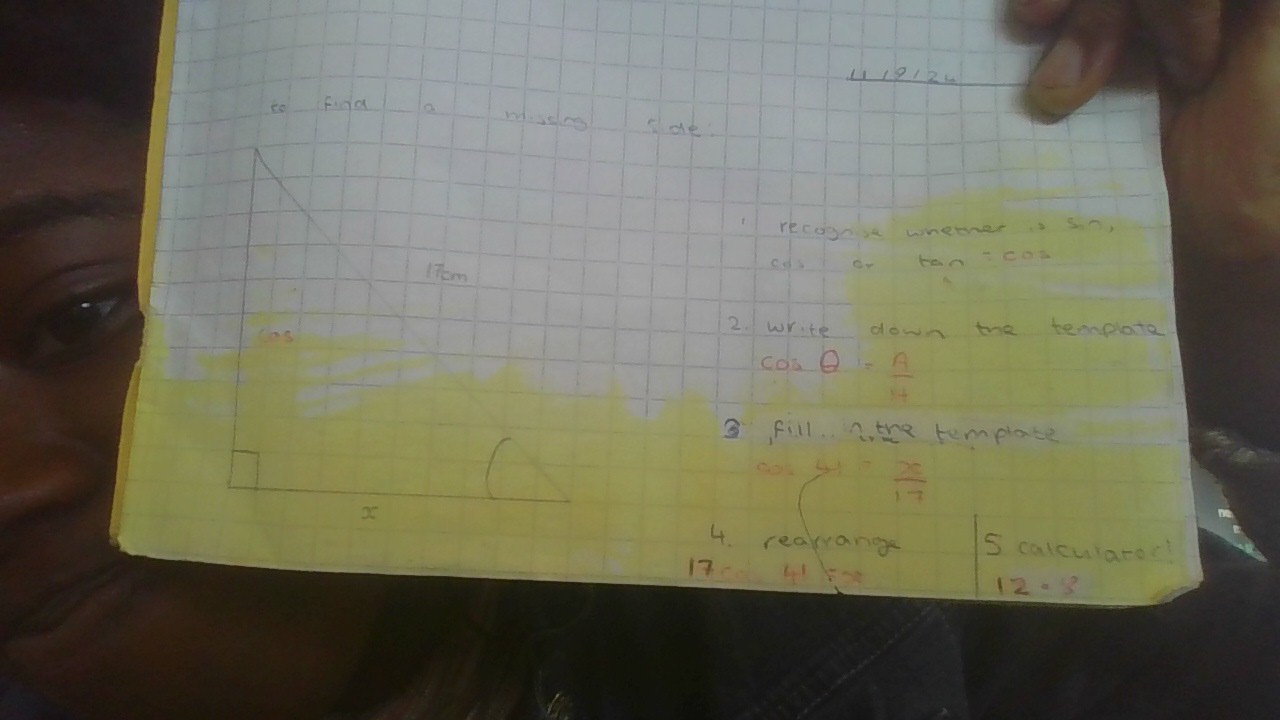 11/9/24
to find a missing side:
17cm
cos
x
1 recognise whether is sin,
cos or tan = cos
2. write down the template
cos θ = A
H
3 fill in the template
cos 41 = x
17
4. rearrange
17cos 41 = x
5 calculator!
12.8